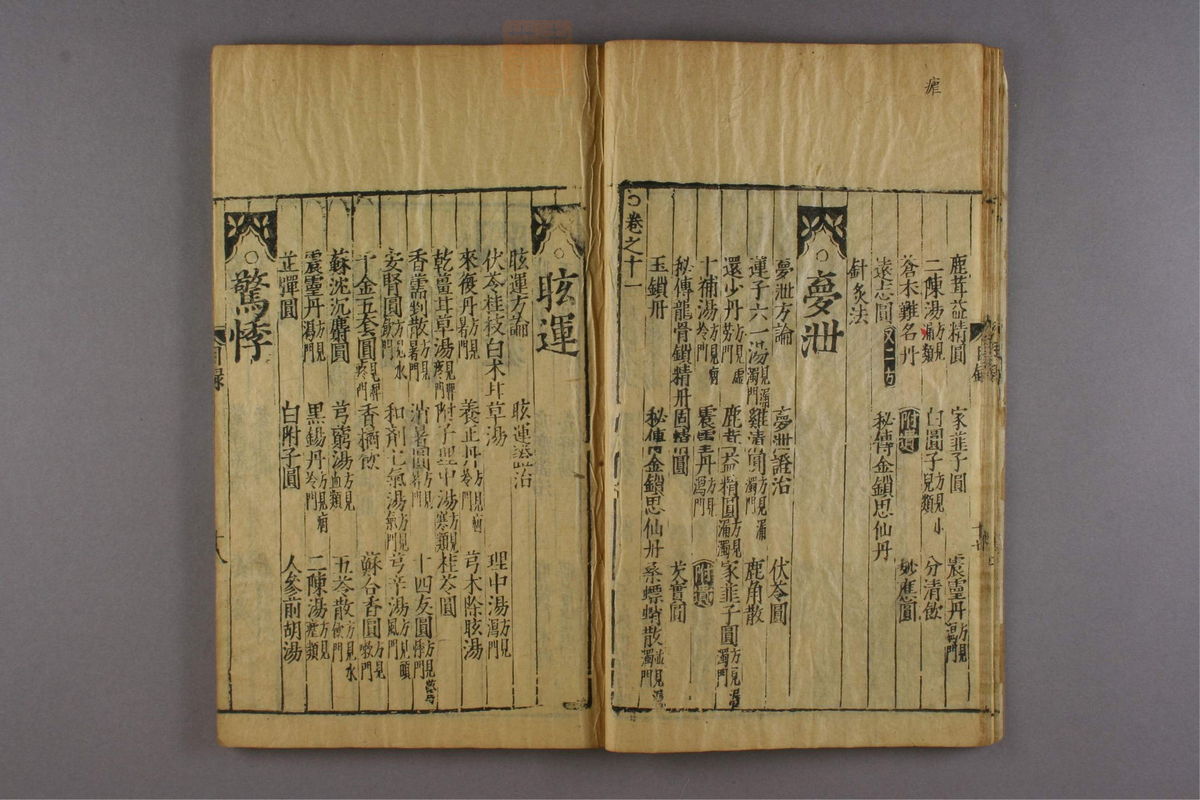 瘧
鹿茸益精圓 家韭子圓 震靈丹方見瀉門
二陳湯方見瘧類 白圓子方見小兒類 分清飲
蒼朮難名丹
遠志圓又二方 附遺 妙應圓
針灸法 秘傳金鎖思仙丹
夢泄
夢泄方論 夢泄證治 伏苓圓
蓮子六一湯見漏濁門 雞清圓方見漏濁門 鹿角散
還少丹方見虛勞門 鹿茸益精圓方見漏濁 家韭子圓方見漏濁門
十補湯方見痼冷門 震靈丹方見瀉門 附遺
秘傳龍骨鎖精丹 固精圓 芡實圓
玉鎖丹 秘傳金鎖思仙丹 桑螵蛸散並見漏濁門
卷之十一
眩運
眩運方論 眩運證治 理中湯方見瀉門
伏苓桂枝白朮甘草湯 芎朮除眩湯
來復丹方見暑門 養正丹方見痼冷門
乾薑甘草湯見脾疼門 附子理中湯方見寒類 桂苓圓
香薷對散方見暑門 消暑圓方見暑門 十四友圓方見驚悸門
安腎圓方見水飲門 和劑七氣湯方見氣門 芎辛湯方見頭風門
千金五套圓見脾疼門 香橘飲 蘇合香圓方見嗽門
蘇沈沉麝圓 芎藭湯方見血類 五苓散方見水飲門
震靈丹方見瀉門 黑錫丹方見痼冷門 二陳湯方見瘧類
芷彈圓 白附子圓 人參前胡湯
驚悸
目錄
十八